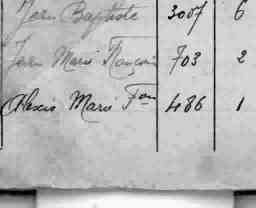 Jean Baptiste 3007 6
Jean Marie François 703 2
Alexis Marie Fois 486 1